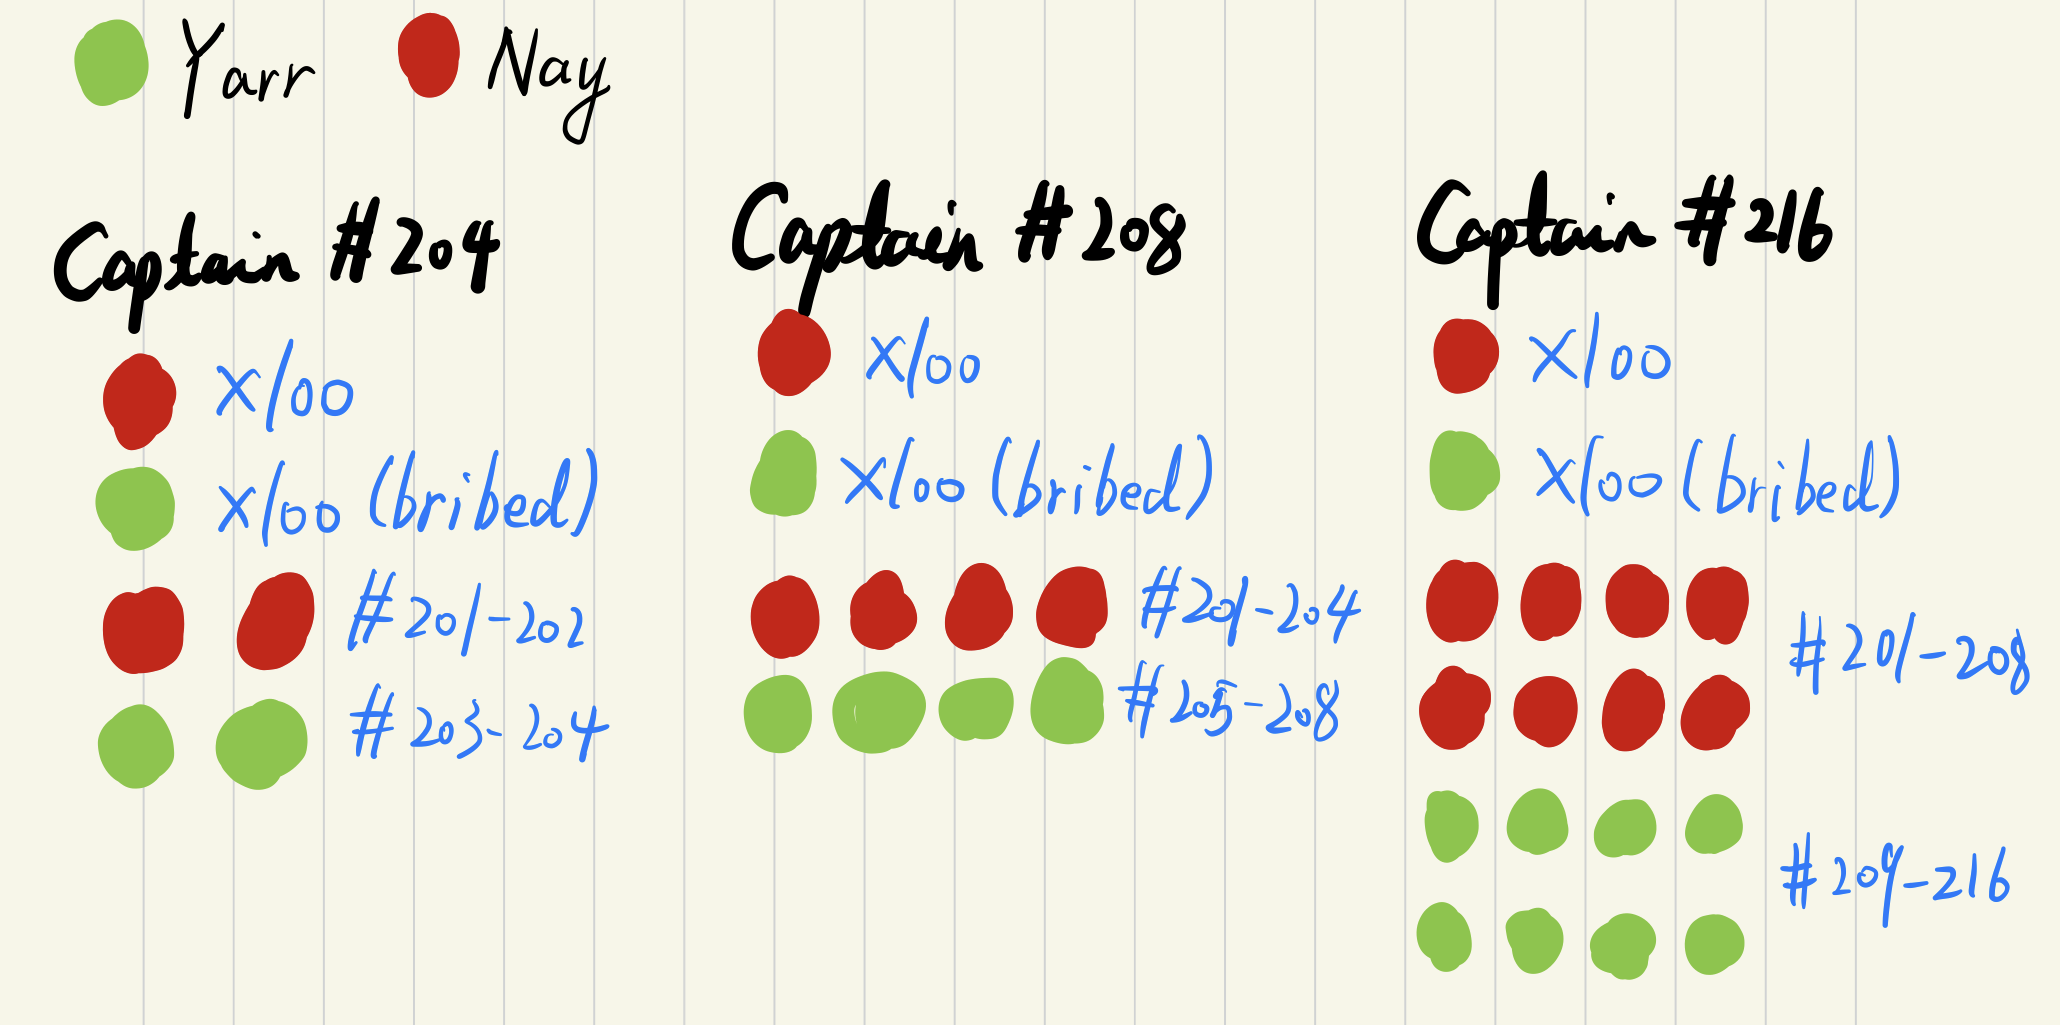 Yarr
Nay
Captain #204
X/00
X/00 (bribed)
#201-202
#203-204
Captain #208
X/00
X/00 (bribed)
#201-204
#205-208
Captain #216
X/00
X/00 (bribed)
#201-208
#209-216